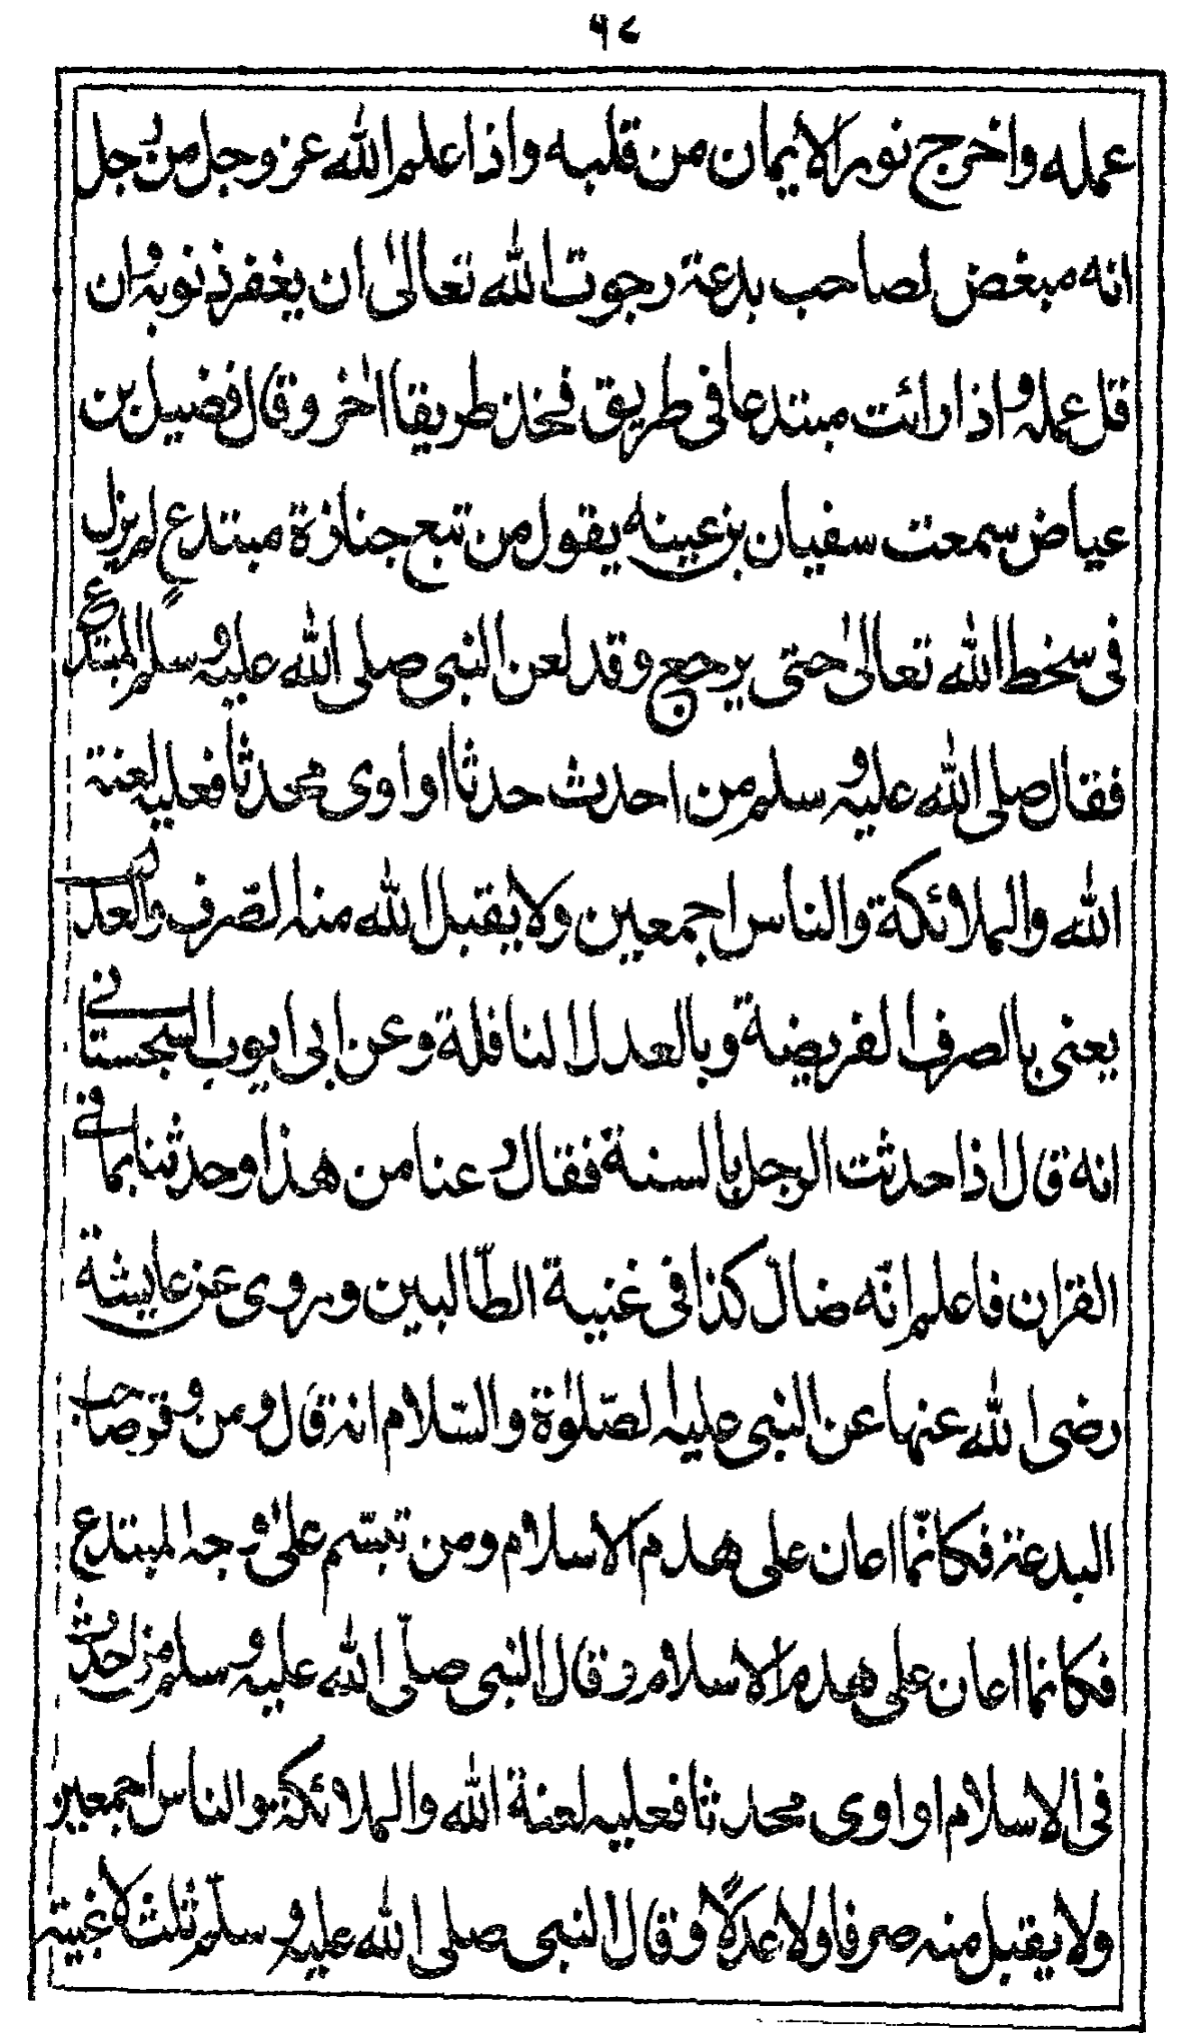 ٩٤
عمله واخرج نور الايمان من قلبه واذا علم الله عز وجل من رجل
انه مبغض لصاحب بدعة رجوت الله تعالى ان يغفر ذنوبه وان
قل عمله واذا رائت مبتدعا فى طريق فخذ طريقا اخر وقال فضيل بن
عياض سمعت سفيان بن عيينه يقول من تبع جنازة مبتدعٍ لم يزل
فى سخط الله تعالى حتى يرجع وقد لعن النبى صلى الله عليه وسلم المبتدع
فقال صلى الله عليه وسلم من احدث حدثا او اوى محدثا فعليه لعنة
الله والملائكة والناس اجمعين ولا يقبل الله منه الصّرف والعدل
يعنى بالصرف الفريضة وبالعدل النافلة وعن ابى ايوب السجستانى
انه قال اذا حدثت الرجل بالسنة فقال دعنا من هذا وحدثنا بما فى
القران فاعلم انّه ضال كذا فى غنية الطّالبين وروى عن عايشة
رضى الله عنها عن النبى عليه الصّلوٰة والسّلام انه قال ومن وقر صاحب
البدعة فكانّما اعان على هدم الاسلام ومن تبسّم على وجه المبتدع
فكانما اعان على هدم الاسلام وقال النبى صلّى الله عليه وسلم من احدث
فى الاسلام او اوى محدثا فعليه لعنة الله والملائكة والناس اجمعين
ولا يقبل منه صرفا ولا عدلًا وقال النبى صلى الله عليه وسلّم ثلث لا غيبة